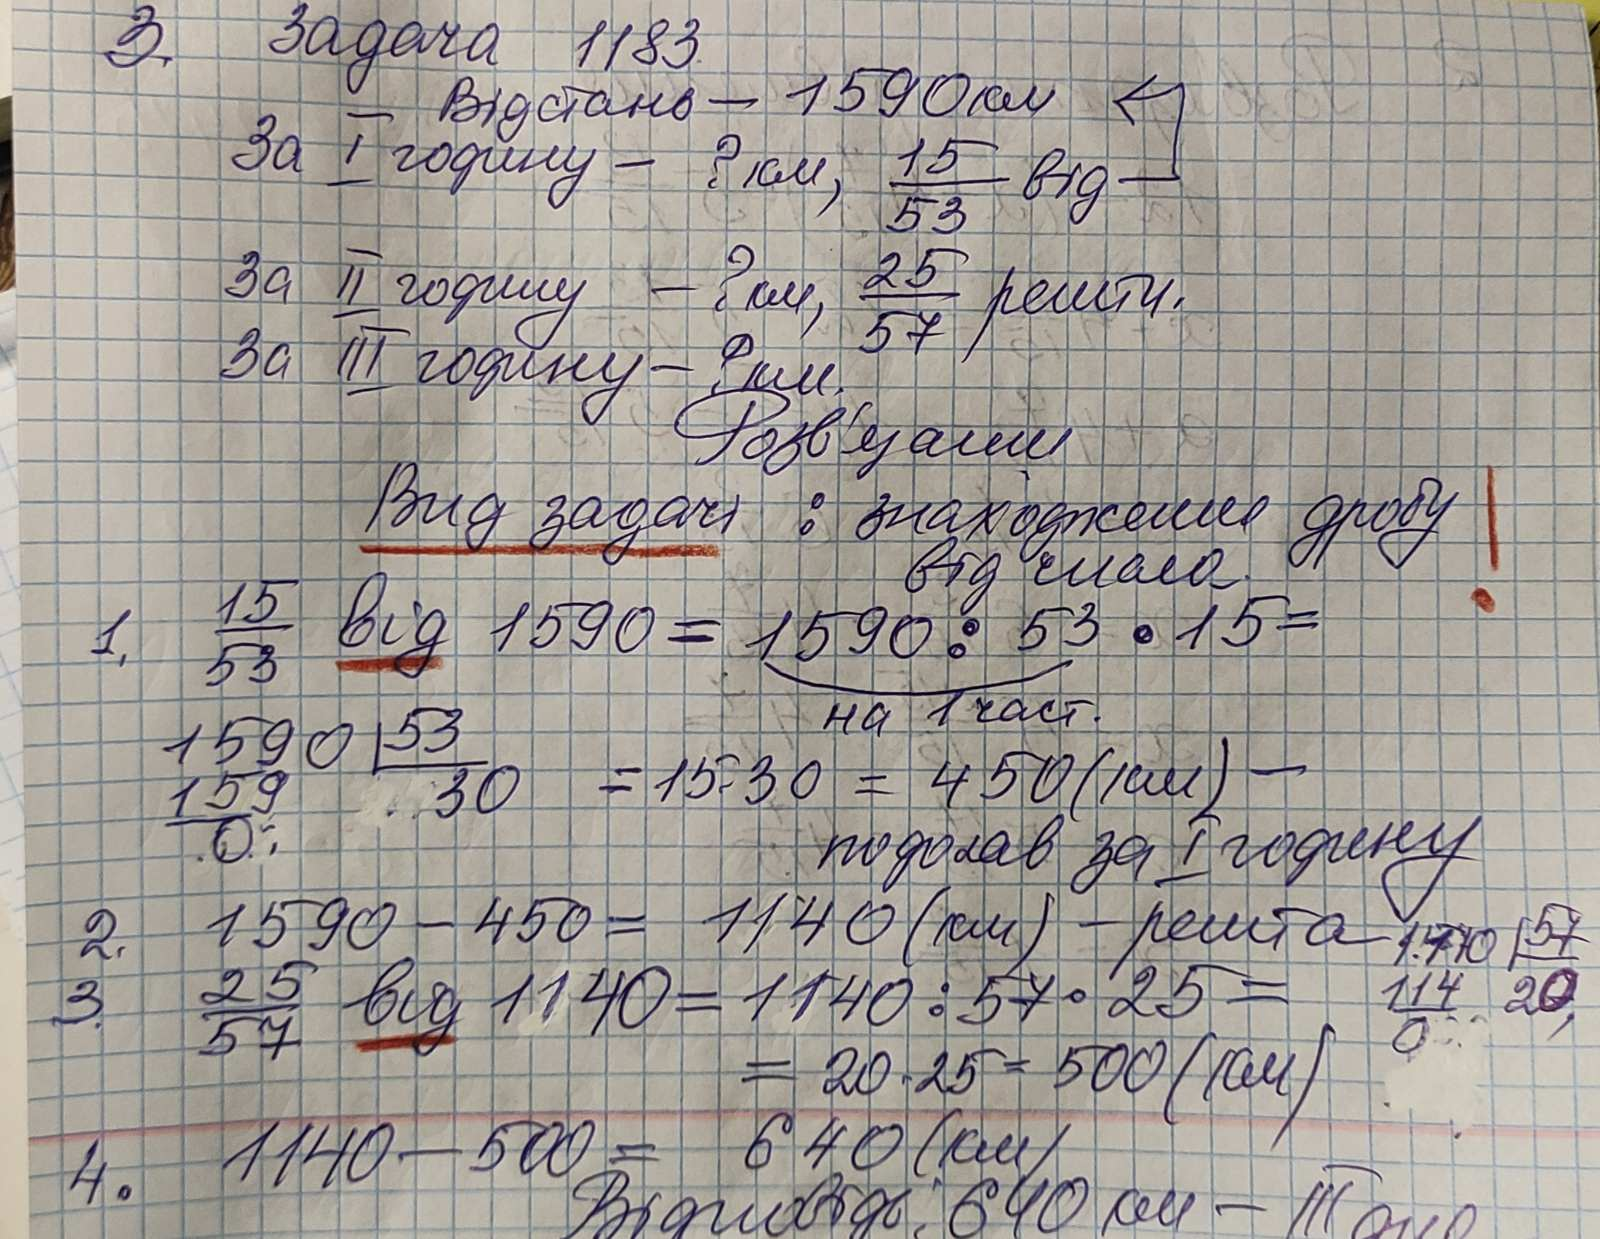 3. Задача 1183.
Відстань – 1590 км
За I годину – ? км, 15/53 від
За II годину – ? км, 25/57 решти.
За III годину – ? км.
Розв'язання
Вид задачі : знаходження дробу !
від числа.
1. 15/53 від 1590 = 1590 : 53 • 15 =
на 1 част.
1590 | 53
159 30
0
= 15·30 = 450 (км) –
подолав за I годину
2. 1590 – 450 = 1140 (км) – решта
1140 | 57
114 20
0
3. 25/57 від 1140 = 1140 : 57 · 25 =
= 20·25 = 500 (км)
4. 1140 – 500 = 640 (км)
Відповідь: 640 км – III